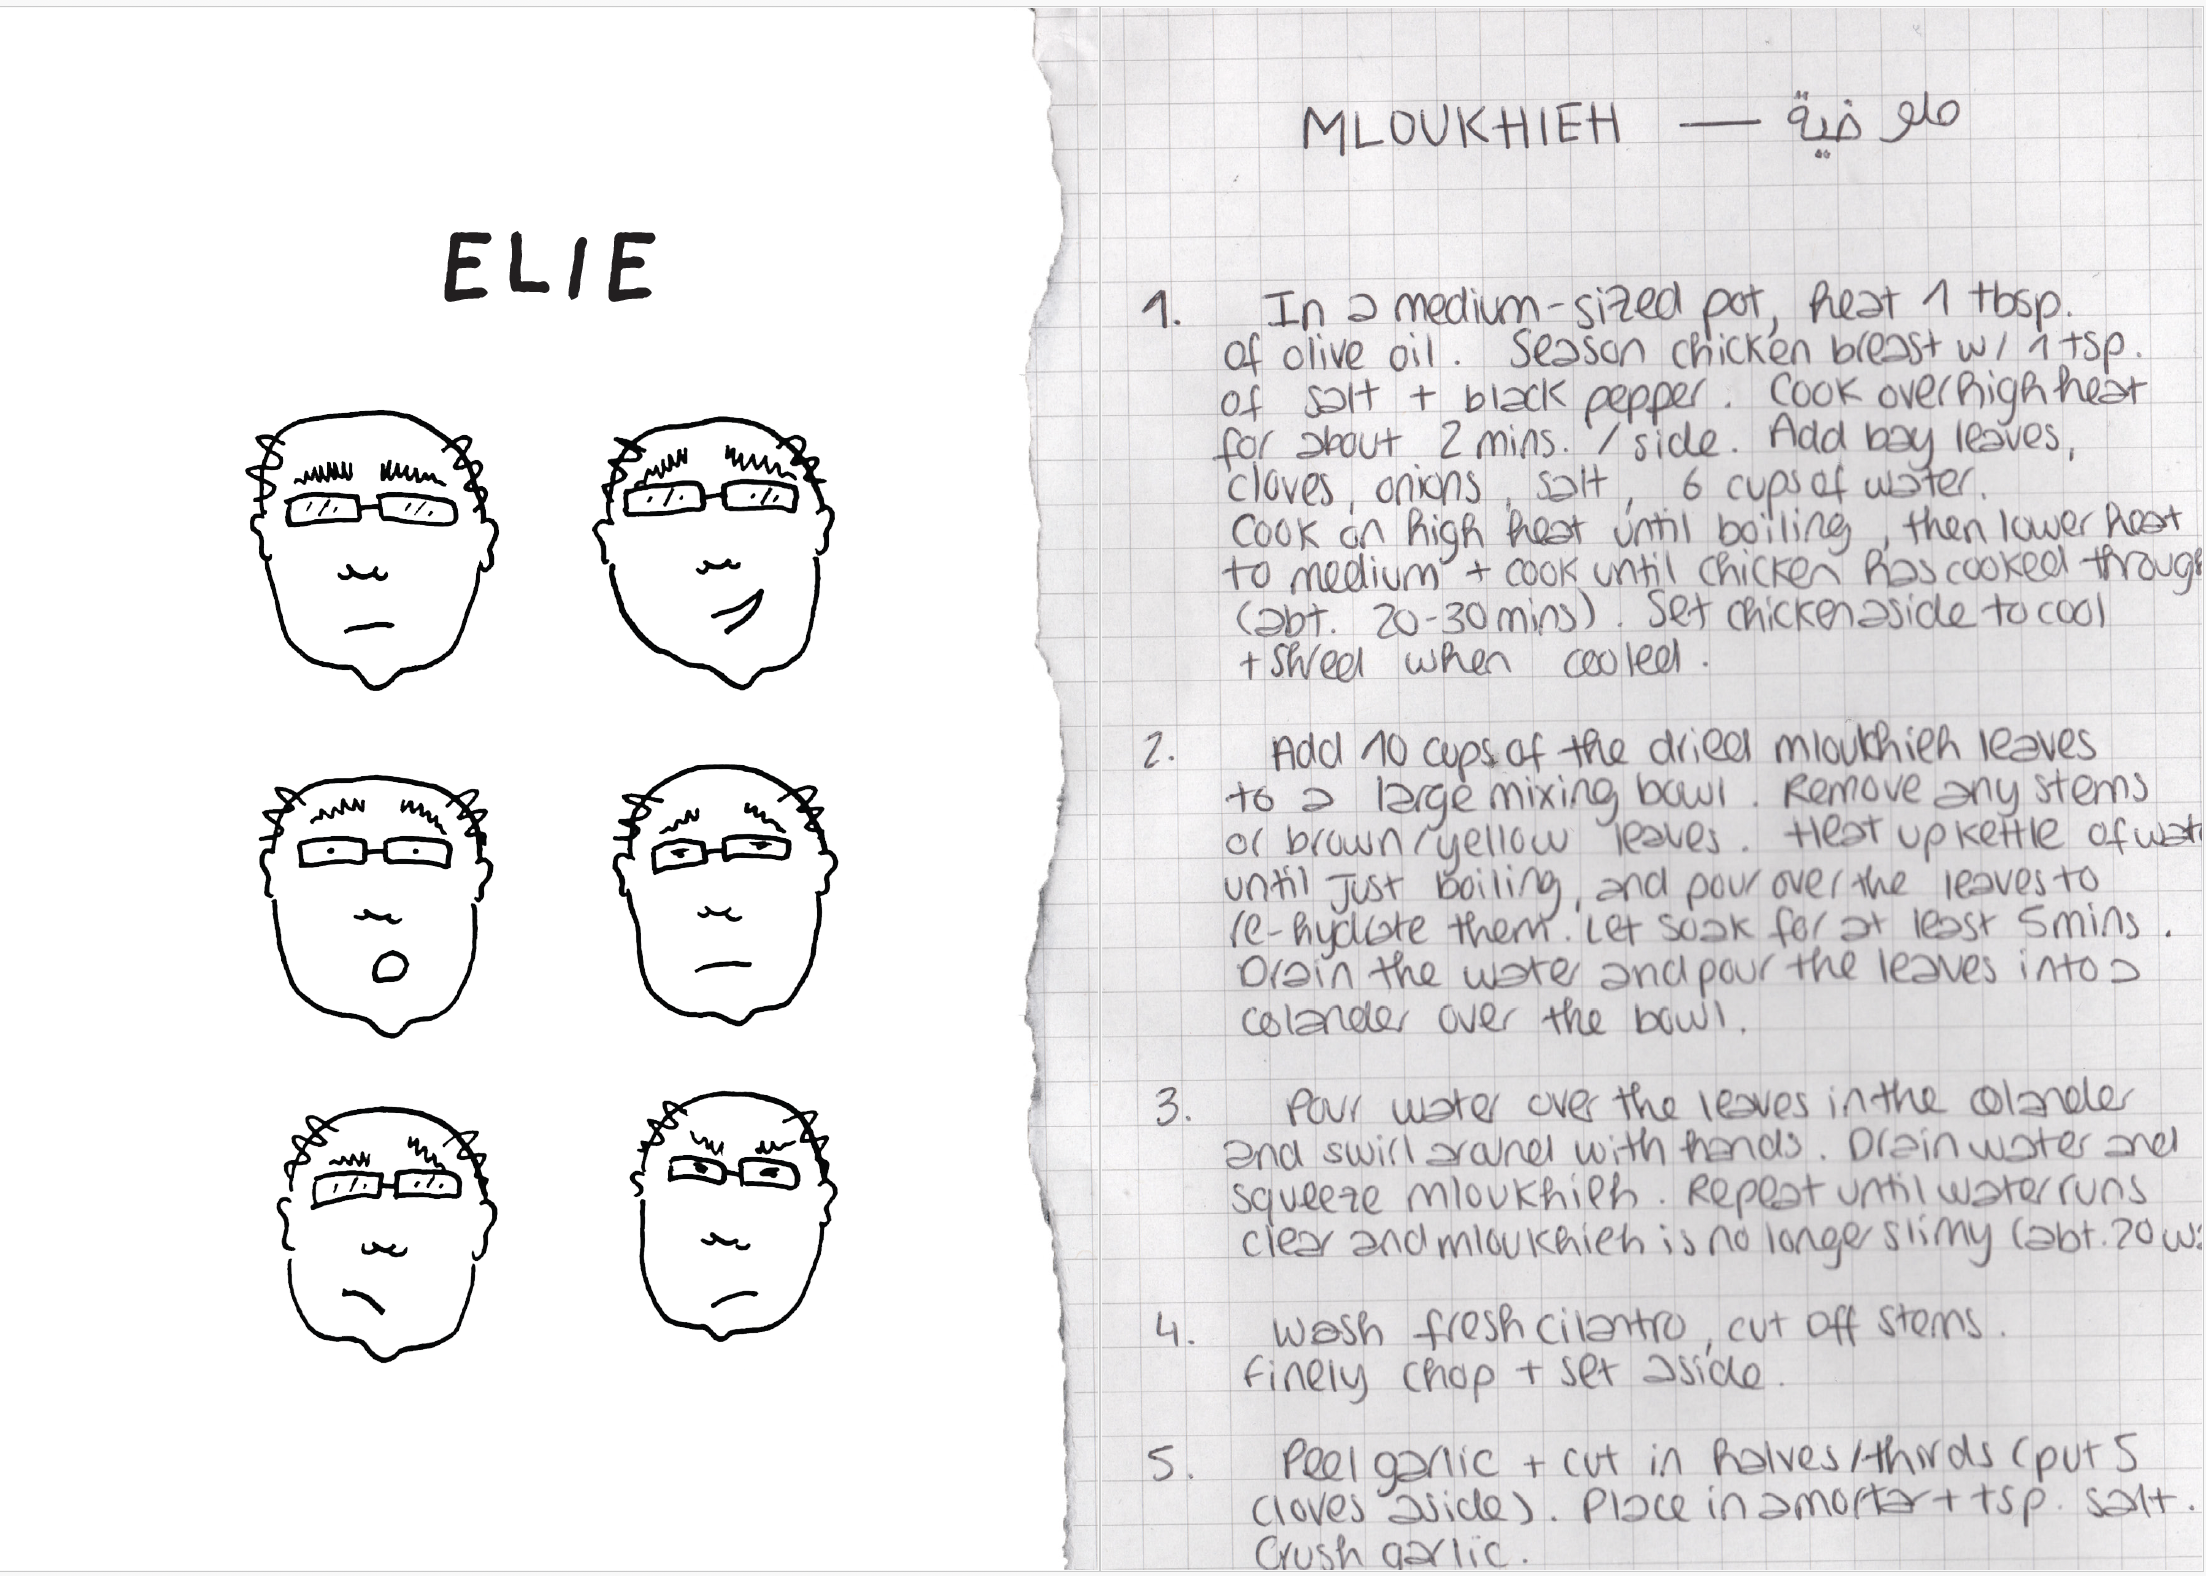 ELIE
MLOUKHIEH — ملوخية
1. In a medium-sized pot, heat 1 tbsp.
of olive oil. Season chicken breast w/ 1 tsp.
of salt + black pepper. Cook over high heat
for about 2 mins. / side. Add bay leaves,
cloves, onions, salt, 6 cups of water.
Cook on high heat until boiling, then lower heat
to medium + cook until chicken has cooked through
(abt. 20-30 mins). Set chicken aside to cool
+ shred when cooled.
2. Add 10 cups of the dried mloukhieh leaves
to a large mixing bowl. Remove any stems
or brown/yellow leaves. Heat up kettle of wat
until just boiling, and pour over the leaves to
re-hydrate them. Let soak for at least 5 mins.
Drain the water and pour the leaves into a
colander over the bowl.
3. Pour water over the leaves in the colander
and swirl around with hands. Drain water and
squeeze mloukhieh. Repeat until water runs
clear and mloukhieh is no longer slimy (abt. 20
4. Wash fresh cilantro, cut off stems.
Finely chop + set aside.
5. Peel garlic + cut in halves/thirds (put 5
cloves aside). Place in a mortar + tsp. salt.
Crush garlic.